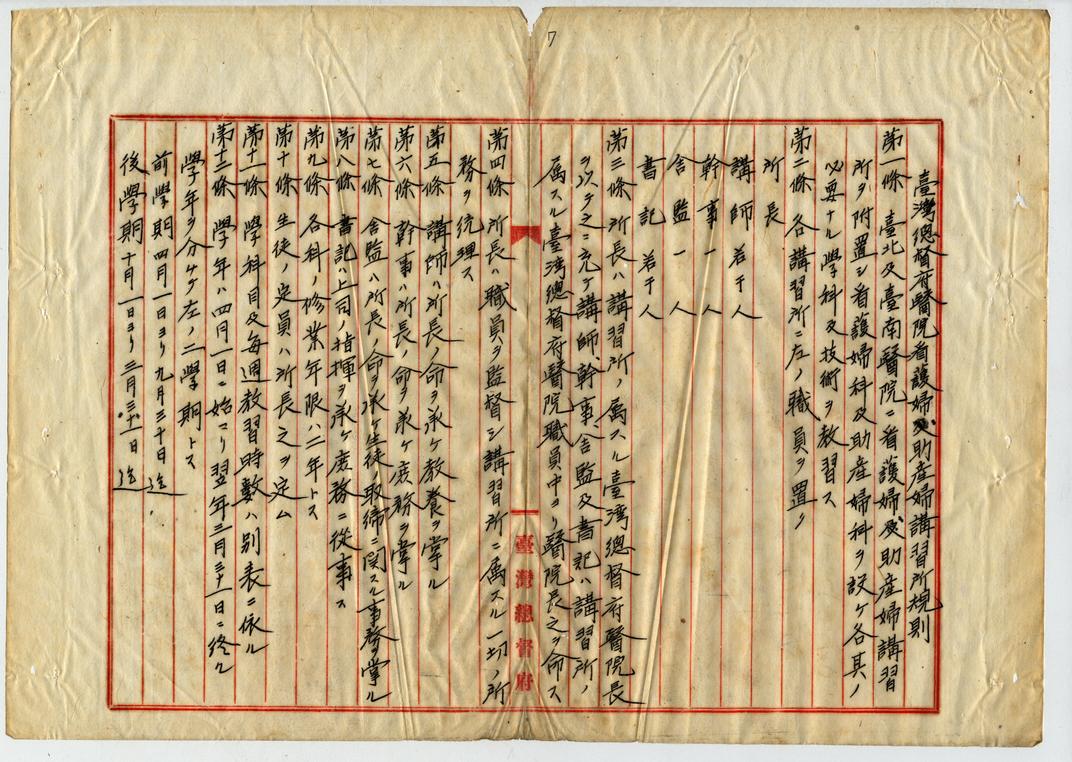 7
臺灣總督府醫院看護婦及助産婦講習所規則
第一條 臺北及臺南醫院ニ看護婦及助産婦講習
所ヲ附置シ看護婦科及助産婦科ヲ設ケ各其ノ
必要ナル學科及技術ヲ教習ス
第二條 各講習所ニ左ノ職員ヲ置ク
所長
講師 若干人
幹事 一人
舎監 一人
書記 若干人
第三條 所長ハ講習所ノ属スル臺湾總督府醫院長
ヲ以テ之ニ充テ講師、幹事、舎監及書記ハ講習所ノ
属スル臺湾總督府醫院職員中ヨリ醫院長之ヲ命ス
臺灣總督府
第四條 所長ハ職員ヲ監督シ講習所ニ属スル一切ノ所
務ヲ統理ス
第五條 講師ハ所長ノ命ヲ承ケ教養ヲ掌ル
第六條 幹事ハ所長ノ命ヲ承ケ庶務ヲ掌ル
第七條 舎監ハ所長ノ命ヲ承ケ生徒ノ取締ニ関スル事務ヲ掌ル
第八條 書記ハ上司ノ指揮ヲ承ケ庶務ニ従事ス
第九條 各科ノ修業年限ハ二年トス
第十條 生徒ノ定員ハ所長之ヲ定ム
第十一條 學科目及毎週教習時數ハ別表ニ依ル
第十二條 學年ハ四月一日ニ始マリ翌年三月三十一日ニ終ル
學年ヲ分ケテ左ノ二學期トス
前學期 四月一日ヨリ九月三十日迄
後學期 十月一日ヨリ三月三十一日迄